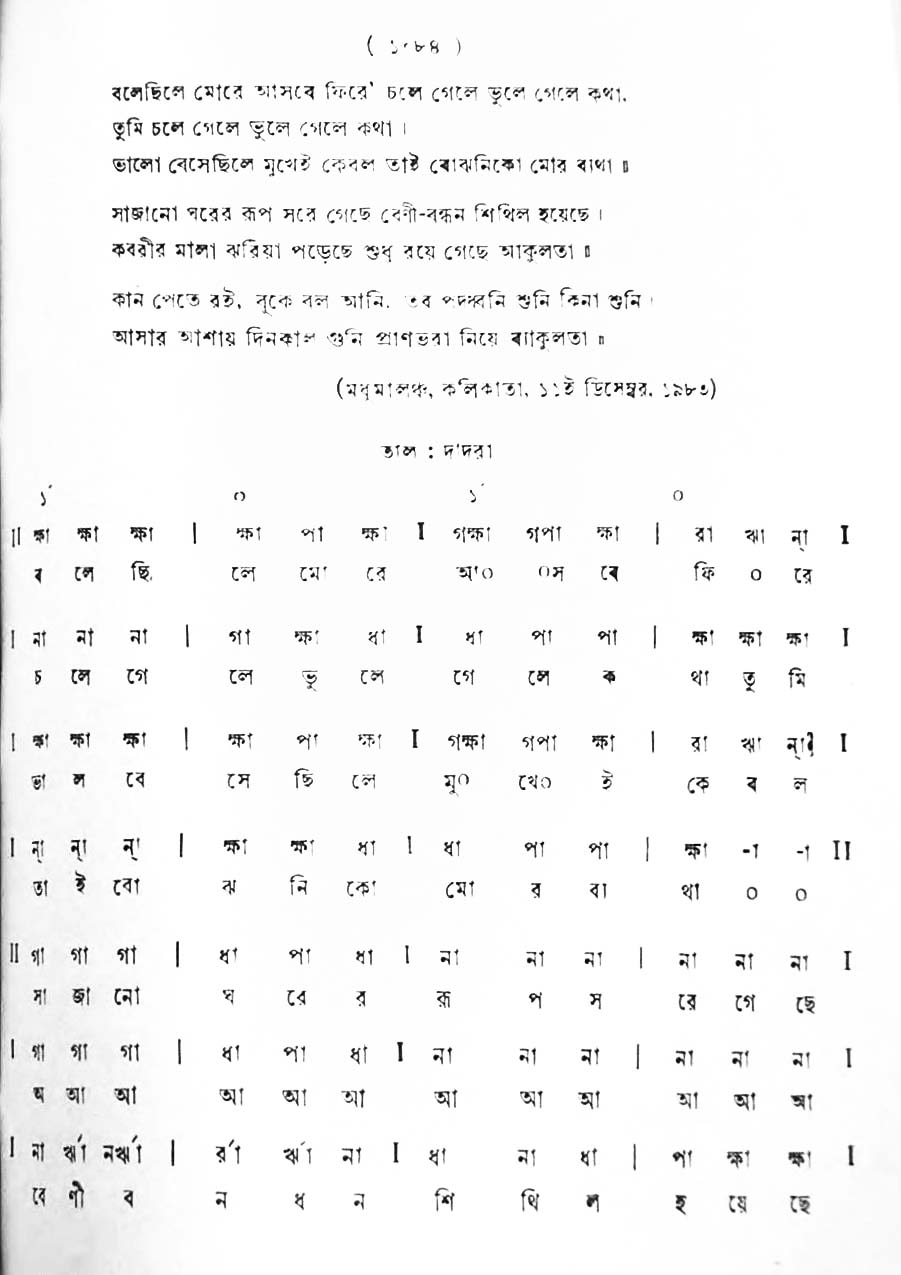 ( ১০৮৪ )
বলেছিলে মোরে আসবে ফিরে' চলে গেলে ভুলে গেলে কথা,
তুমি চলে গেলে ভুলে গেলে কথা ।
ভালো বেসেছিলে মুখেই কেবল তাই বোঝনিকো মোর ব্যথা ॥
সাজানো ঘরের রূপ সরে গেছে বেণী-বন্ধন শিথিল হয়েছে ।
কবরীর মালা ঝরিয়া পড়েছে শুধু রয়ে গেছে আকুলতা ॥
কান পেতে রই, বুকে বল আনি, তব পদধ্বনি শুনি কিনা শুনি ।
আসার আশায় দিনকাল গুনি প্রাণভরা নিয়ে ব্যাকুলতা ॥
(মধুমালঞ্চ, কলিকাতা, ১১ই ডিসেম্বর, ১৯৮৩)
তাল : দাদরা
১´ ০ ১´ ০
II ক্ষা ক্ষা ক্ষা | ক্ষা পা ক্ষা I গক্ষা গপা ক্ষা | রা ঋা ন্া I
ব লে ছি লে মো রে আ০ ০স বে ফি ০ রে
I না না না | গা ক্ষা ধা I ধা পা পা | ক্ষা ক্ষা ক্ষা I
চ লে গে লে ভু লে গে লে ক থা তু মি
I ক্ষা ক্ষা ক্ষা | ক্ষা পা ক্ষা I গক্ষা গপা ক্ষা | রা ঋা ন্া I
ভা ল বে সে ছি লে মু০ খে০ ই কে ব ল
I ন্া ন্া ন্া | ক্ষা ক্ষা ধা I ধা পা পা | ক্ষা -া -া II
তা ই বো ঝ নি কো মো র ব্যা থা ০ ০
II গা গা গা | ধা পা ধা I না না না | না না না I
সা জা নো ঘ রে র রূ প স রে গে ছে
I গা গা গা | ধা পা ধা I না না না | না না না I
অ আ আ আ আ আ আ আ আ আ আ আ
I না র্ঋা নর্ঋা | র্রা র্ঋা না I ধা না ধা | পা ক্ষা ক্ষা I
বে ণী ব ন ধ ন শি থি ল হ য়ে ছে